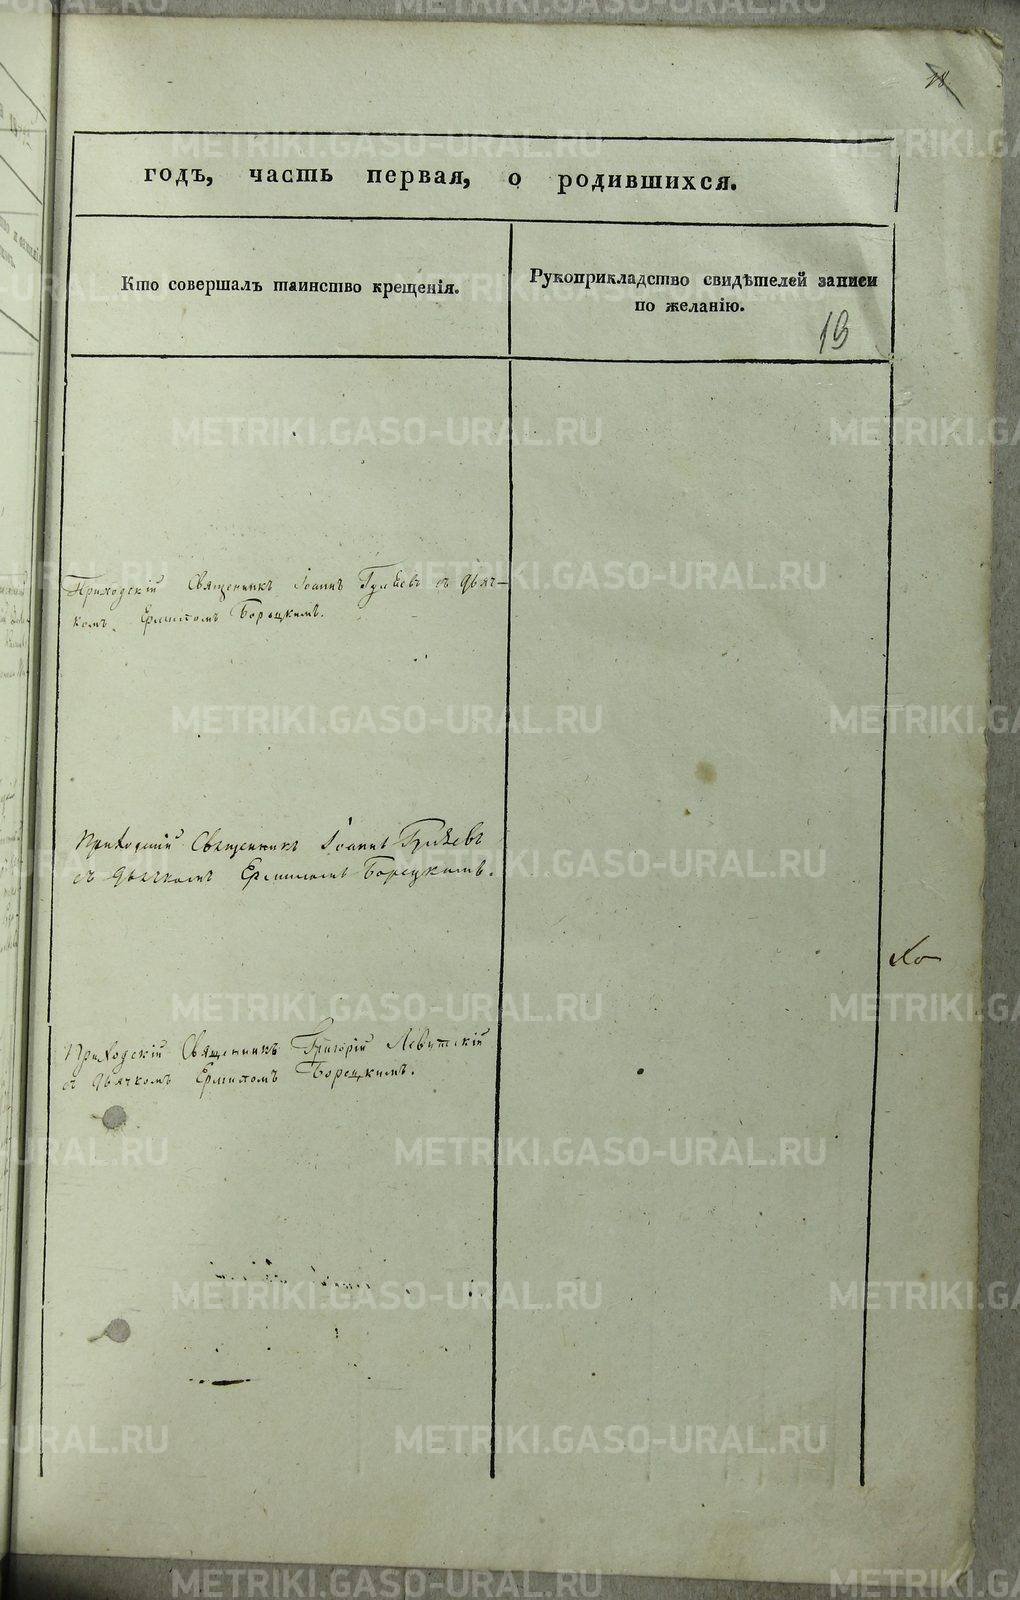 18
годъ, часть первая, о родившихся.
Кто совершалъ таинство крещенія.
Рукоприкладство свидѣтелей записи
по желанію.
19
Приходскій Священникъ Іоаннъ Гуляевъ съ дьяч-
комъ Ермиломъ Борецкимъ.
Приходскій Священникъ Іоаннъ Гуляевъ
съ дьячкомъ Ермиломъ Борецкимъ.
Приходскій Священникъ Григорій Левитскій
съ дьячкомъ Ермиломъ Борецкимъ.
METRIKI.GASO-URAL.RU